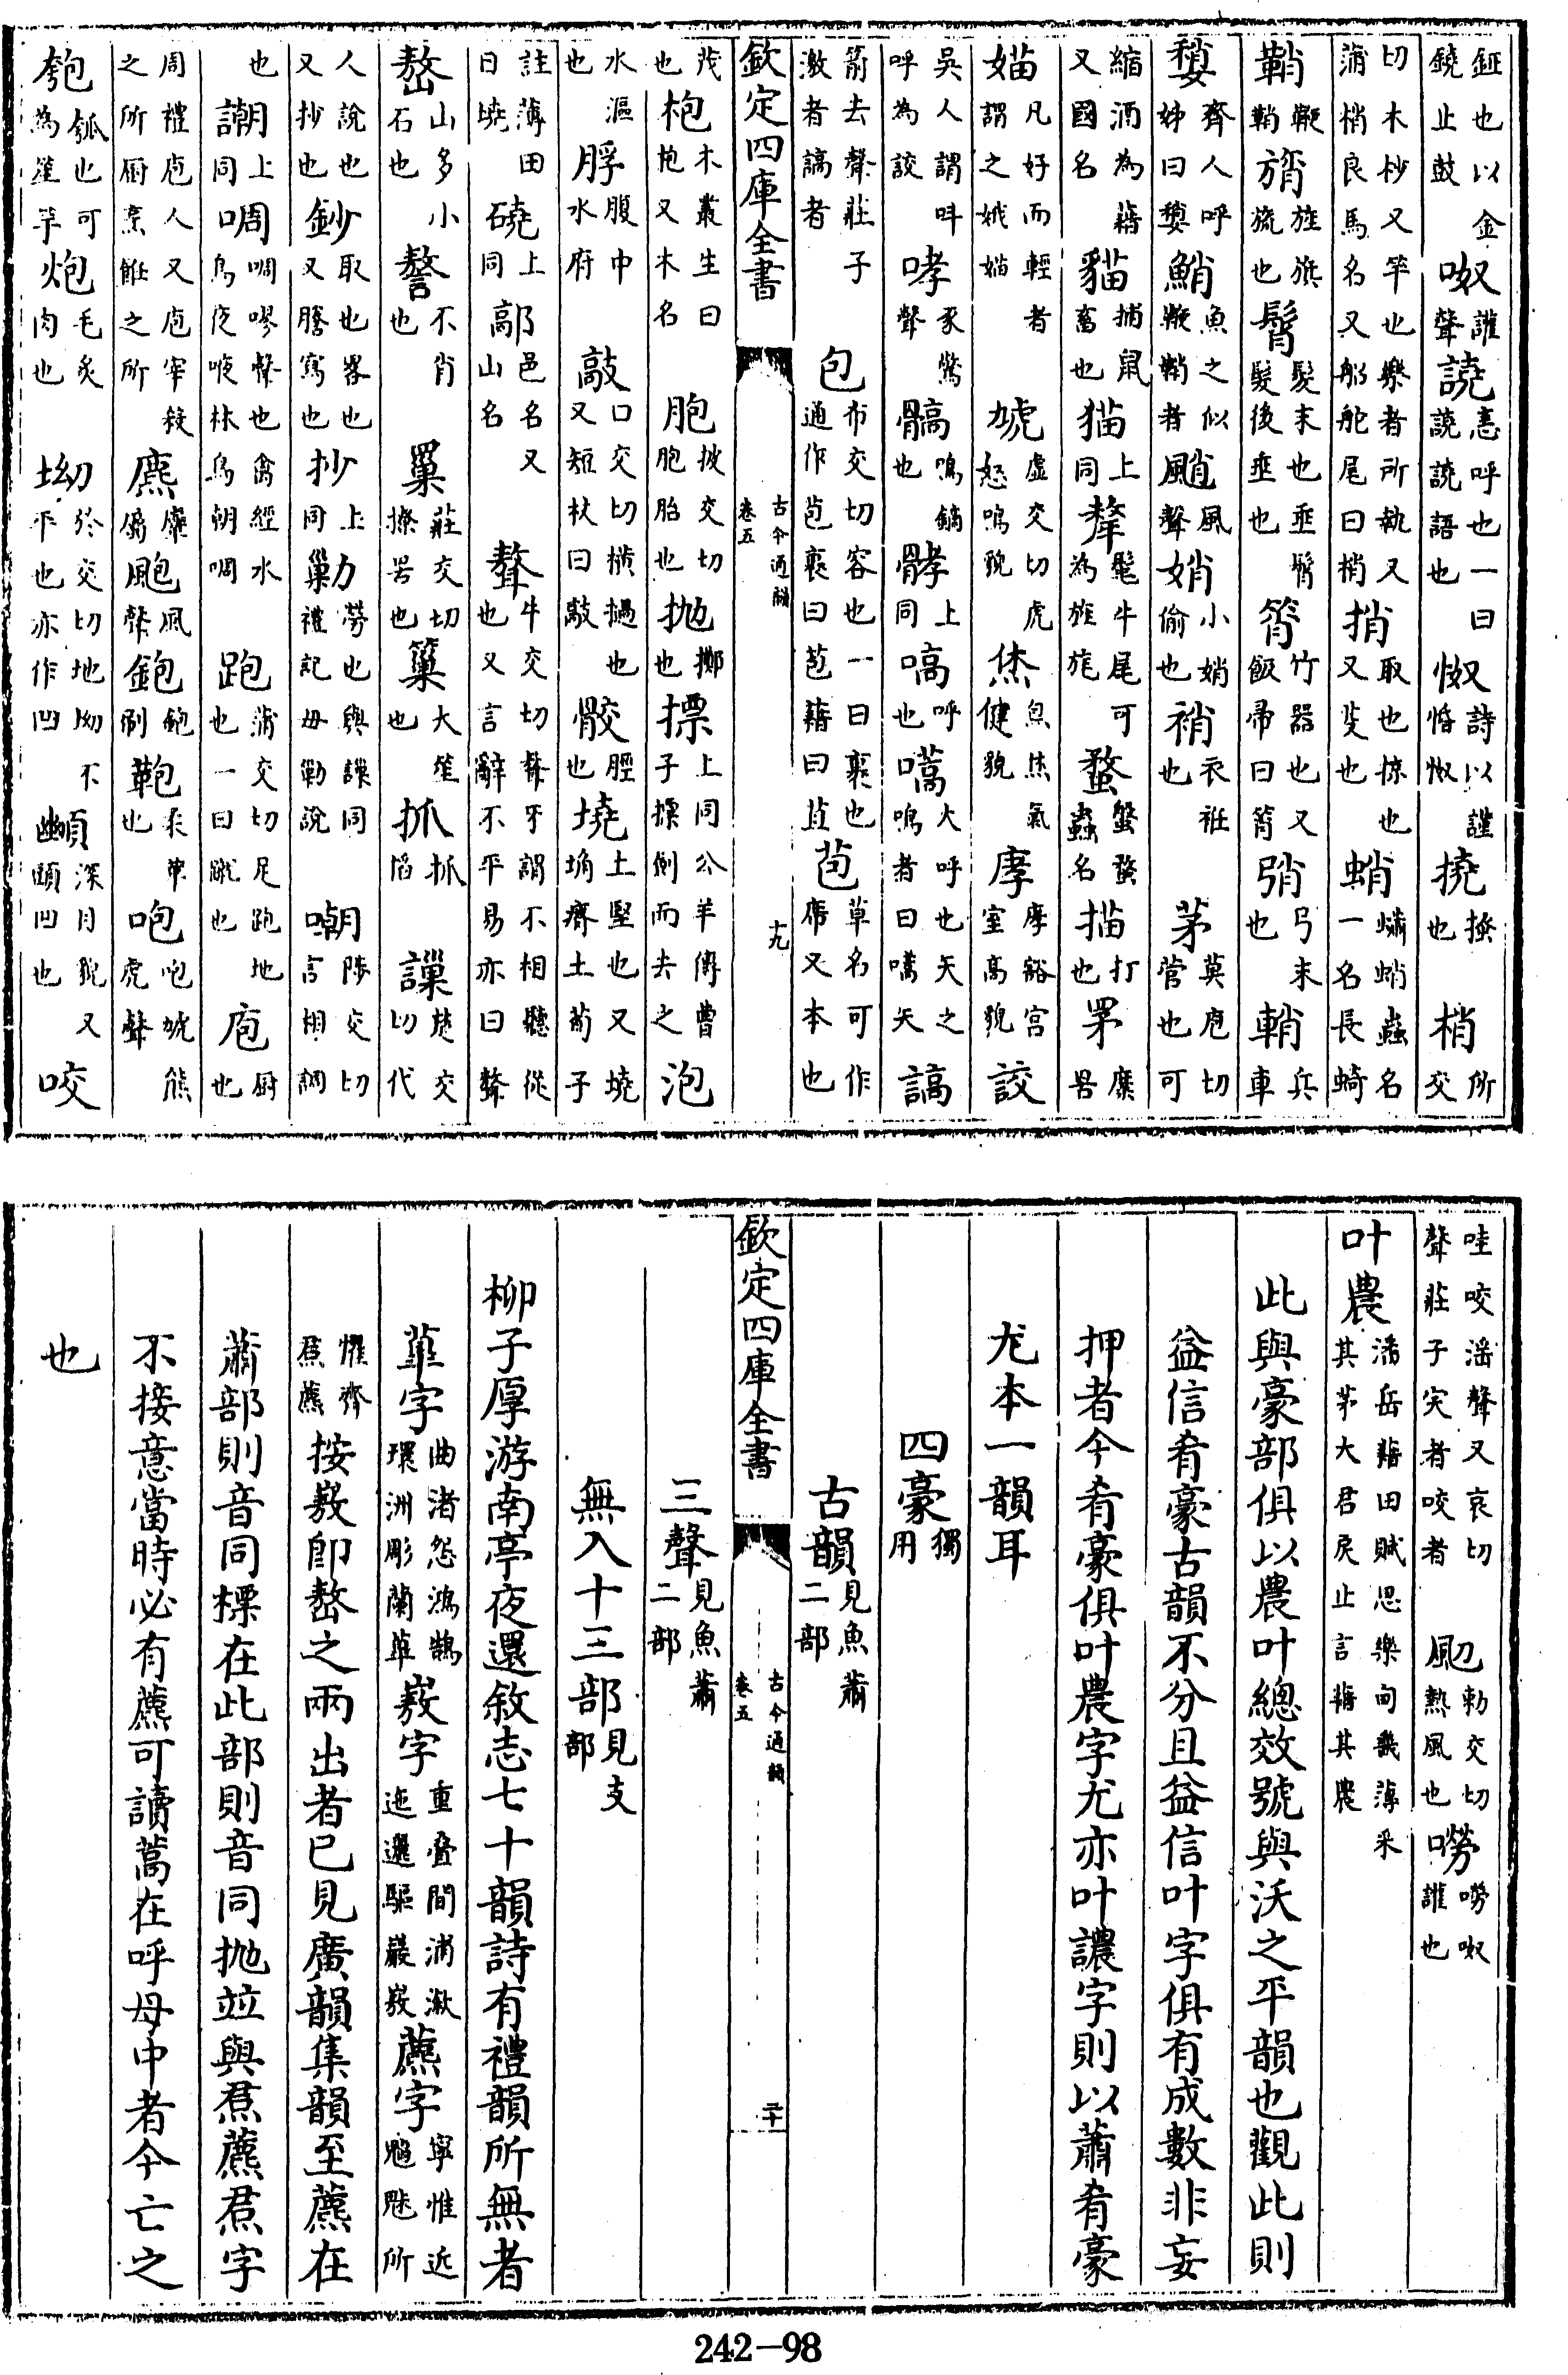 鉦也以金鐃止鼓 呶讙聲 譊恚呼也一曰譊譊語也 怓詩以謹惛怓 撓撩也 梢所交
切木杪又竿也樂者所執又蒲梢良馬名又船舵尾曰梢 捎取也掠也又芟也 蛸蠨蛸蟲名一名長蜘
鞘鞭鞘 旓旌旗旒也 髾髮末也垂髾髮後垂也 筲竹器也又飯帚曰筲 弰弓末也 輎兵車
㛮齊人呼姊曰㛮 鮹魚之似鞭鞘者 颵風聲 娋小娋偷也 䘯衣袵也 茅莫庖切菅也可
縮酒為藉又國名 貓捕鼠畜也 猫上同 犛髦牛尾可為旌旄 蝥蟹蝥蟲名 描打也 罞麋罟
媌凡好而輕者謂之娥媌 虓虛交切虎怒鳴貌 烋炰烋氣健貌 庨庨豁宮室高貌 詨
吳人謂呌呼為詨 哮豕驚聲 髇鳴鏑也 髐上同 嗃呼也 嚆大呼也矢之鳴者曰嚆矢 謞
箭去聲莊子激者謞者 包布交切容也一曰裹也通作苞裹曰苞藉曰苴 苞草名可作席又本也
欽定四庫全書 古今通韻 卷五 十九
茂也 枹木叢生曰枹又木名 胞披交切胞胎也 抛擲也 摽上同公羊傳曹子摽劍而去之 泡
水漚也 脬腹中水府 敲口交切橫撾也又短杖曰敲 骹脛也 墝土堅也又墝埆瘠土荀子
註薄田曰墝 磽上同 鄗邑名又山名 聱牛交切聱牙謂不相聽從也又言辭不平易亦曰聱
嶅山多小石也 謷不肖也 巢莊交切撩罟也 䈾大笙也 抓抓掐 譟楚交切代
人說也又抄也 鈔取也略也又謄寫也 抄上同 勦勞也與謙同禮記毋勦說 嘲陟交切言相調
也 謿上同 啁啁嘐聲也禽經水鳥夜啾林鳥朝啁 跑蒲交切足跑地也一曰蹴也 庖厨也
周禮庖人又庖宰殺之所厨烹飪之所 麃麋屬 颮風聲 鉋鉋刷 鞄柔革也 咆咆虓熊虎聲
匏瓠也可為笙竽 炮毛炙肉也 坳於交切地坳不平也亦作凹 䫜深目貌又頭凹也 咬
哇咬淫聲又哀切聲莊子宎者咬者 䫸勅交切熱風也 嘮嘮呶讙也
叶農潘岳藉田賦思樂甸畿薄采其茅大君戾止言藉其農
此與豪部俱以農叶總效號與沃之平韻也觀此則
益信肴豪古韻不分且益信叶字俱有成數非妄
押者今肴豪俱叶農字尤亦叶讙字則以蕭肴豪
尤本一韻耳
四豪獨用
古韻見魚蕭二部
欽定四庫全書 古今通韻 卷五 二十
三聲見魚蕭二部
無入十三部見支部
柳子厚游南亭夜還敘志七十韻詩有禮韻所無者
菬字曲渚怨鴻鵠環洲彫蘭菬 嶅字重疊間浦溆迤邐驅巖嶅 藨字寧惟近魑魅所
懼齊焄藨 按嶅即嶅之兩出者已見廣韻集韻至藨在
蕭部則音同標在此部則音同抛竝與焄藨焄字
不接意當時必有藨可讀蒿在呼母中者今亡之
也
242-98